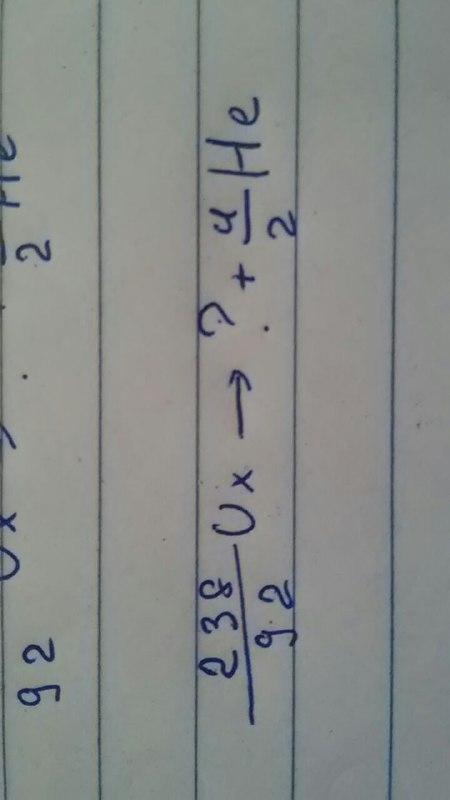 92 Ux → 2 He
238/92 Ux → ? + 4/2 He